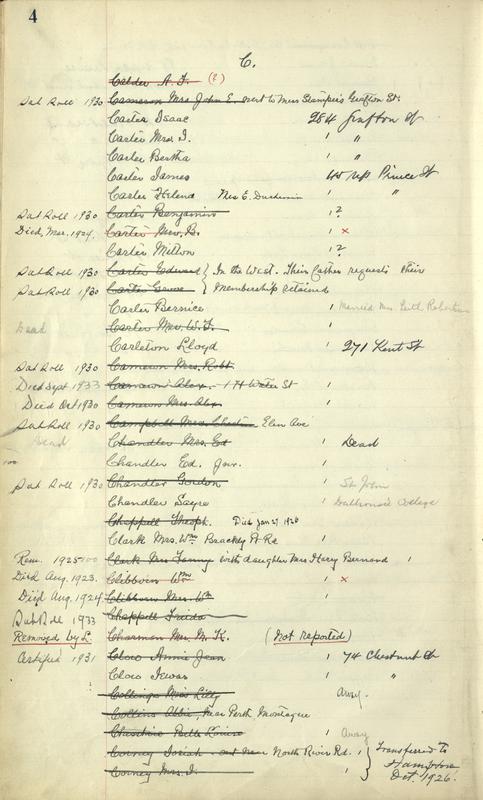 4
C.
Calder A. F. (?)
Sup Roll 1930 Cameron Mrs John E. went to Miss Stamper's Grafton St.
Carter Isaac 284 Grafton St
Carter Mrs I. ' "
Carter Bertha ' "
Carter James Up Prince St
Carter Helena Mrs E. ' "
Sup Roll 1930 Carter Benjamin ' ?
Died, Mar. 1924. Carter Mrs. B. ' x
Carter Milton ' ?
Sup Roll 1930 Carter Edward } In the West. Their father requests their
Sup Roll 1930 Carter } Membership retained
Carter Bernice ' Married Mr Robertson
Dead Carter Mrs W. F. '
Carleton Lloyd ' 271 Kent St
Sup Roll 1930 Cameron Mrs. Robt. '
Died Sept 1933 Cameron Alex. Water St '
Died Oct 1930 Cameron Mrs. Alex '
Sup Roll 1930 Campbell Mrs. Chester Elm Ave
Dead Chandler Mrs. Ed ' Dead
Chandler Ed. Jnr. '
Sup Roll 1930 Chandler Gordon ' St John
Chandler Sayre ' Dalhousie College
Chappell Theoph. Died Jan 27 1928
Clark Mrs. Wm Brackley Pt Rd '
Rem. 1925 Clark Mrs Fanny with daughter Mrs Harry Bernard '
Died Aug. 1923. Clibborn Wm ' x
Died Aug. 1924 Clibborn Mrs. Wm '
Sup Roll 1933 Chappell Frieda
Removed by L. Charman Mrs. M. K. (Not reported)
Certified 1931 Clow Annie Jean ' 74 Chestnut St
Clow ' "
Collings Miss Lilly Away.
Collins Abbie, Near Perth Montague
Away
Corney Josiah - out near North River Rd. ' } Transferred to
Corney Mrs. J. ' } Hampton
Oct. 1926.